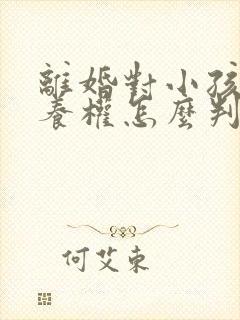 離婚對小孩
養權怎麼判
何艾東